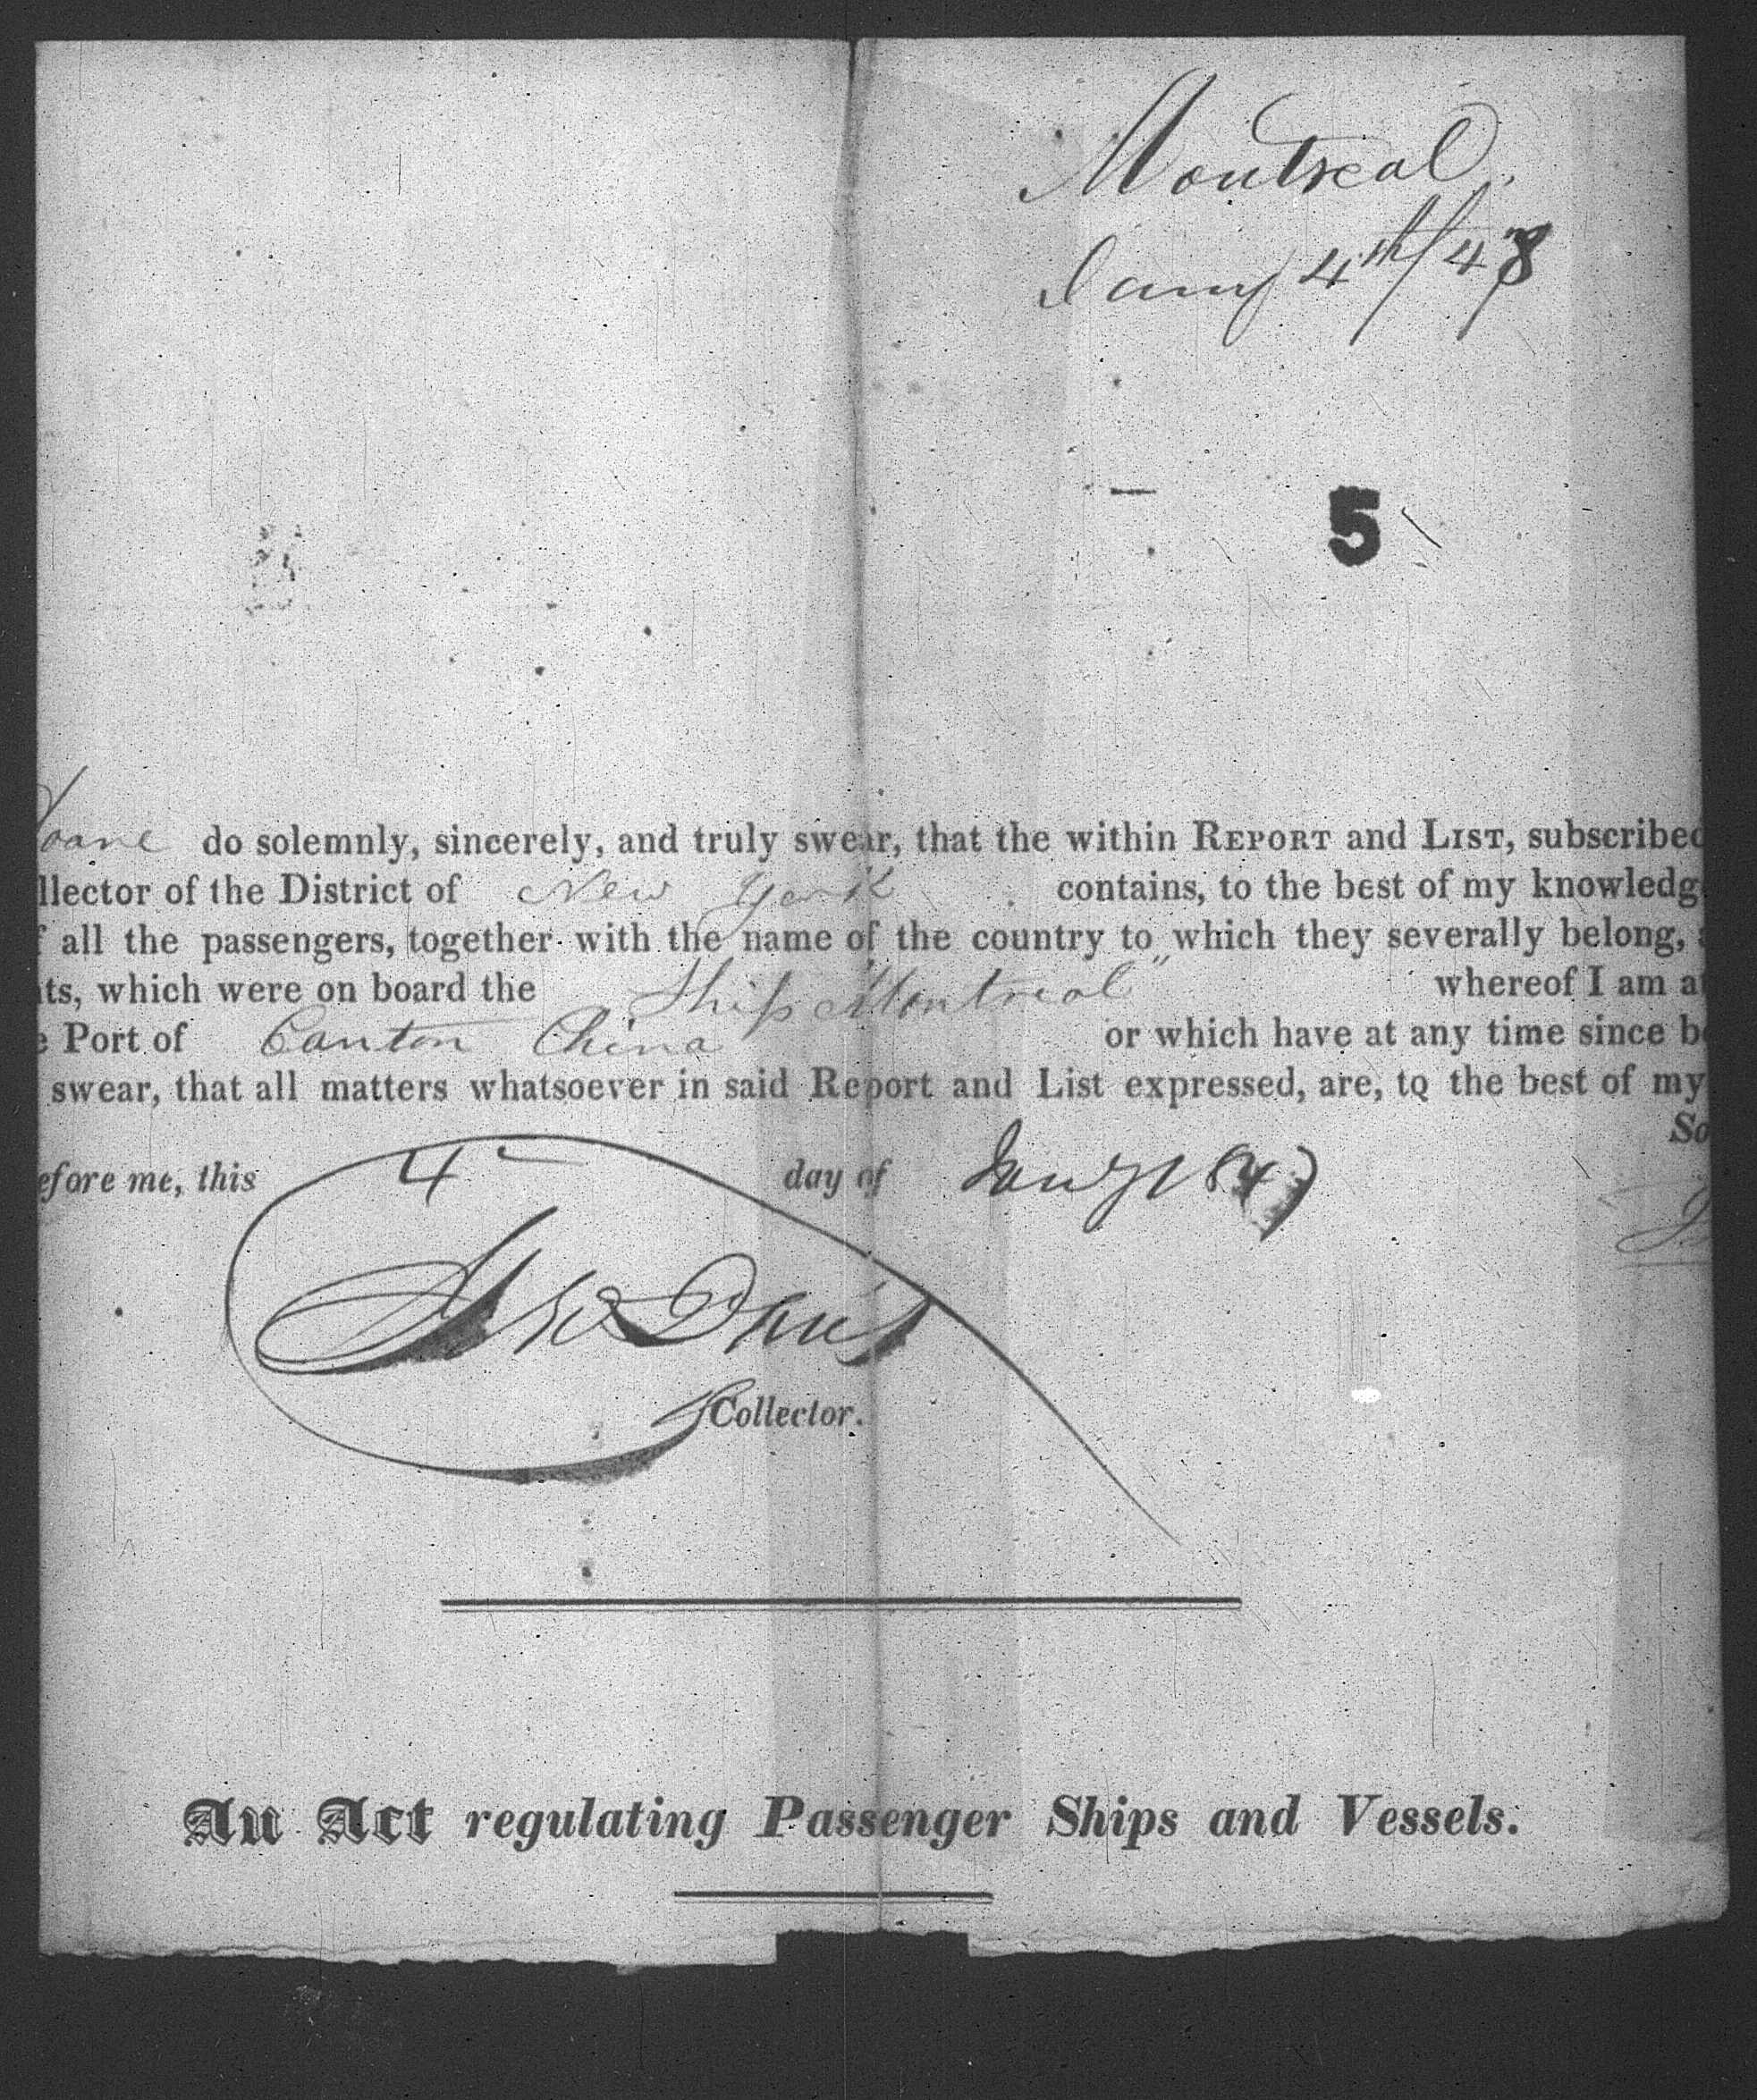 Montreal
Jany 4th/48
5
do solemnly, sincerely, and truly swear, that the within REPORT and LIST, subscribed
llector of the District of New York contains, to the best of my knowledg
f all the passengers, together with the name of the country to which they severally belong, a
ts, which were on board the Ship Montreal" whereof I am at
e Port of Canton China or which have at any time since be
swear, that all matters whatsoever in said Report and List expressed, are, to the best of my
So
efore me, this 4 day of Jany 184
Davis
Collector.
An Act regulating Passenger Ships and Vessels.